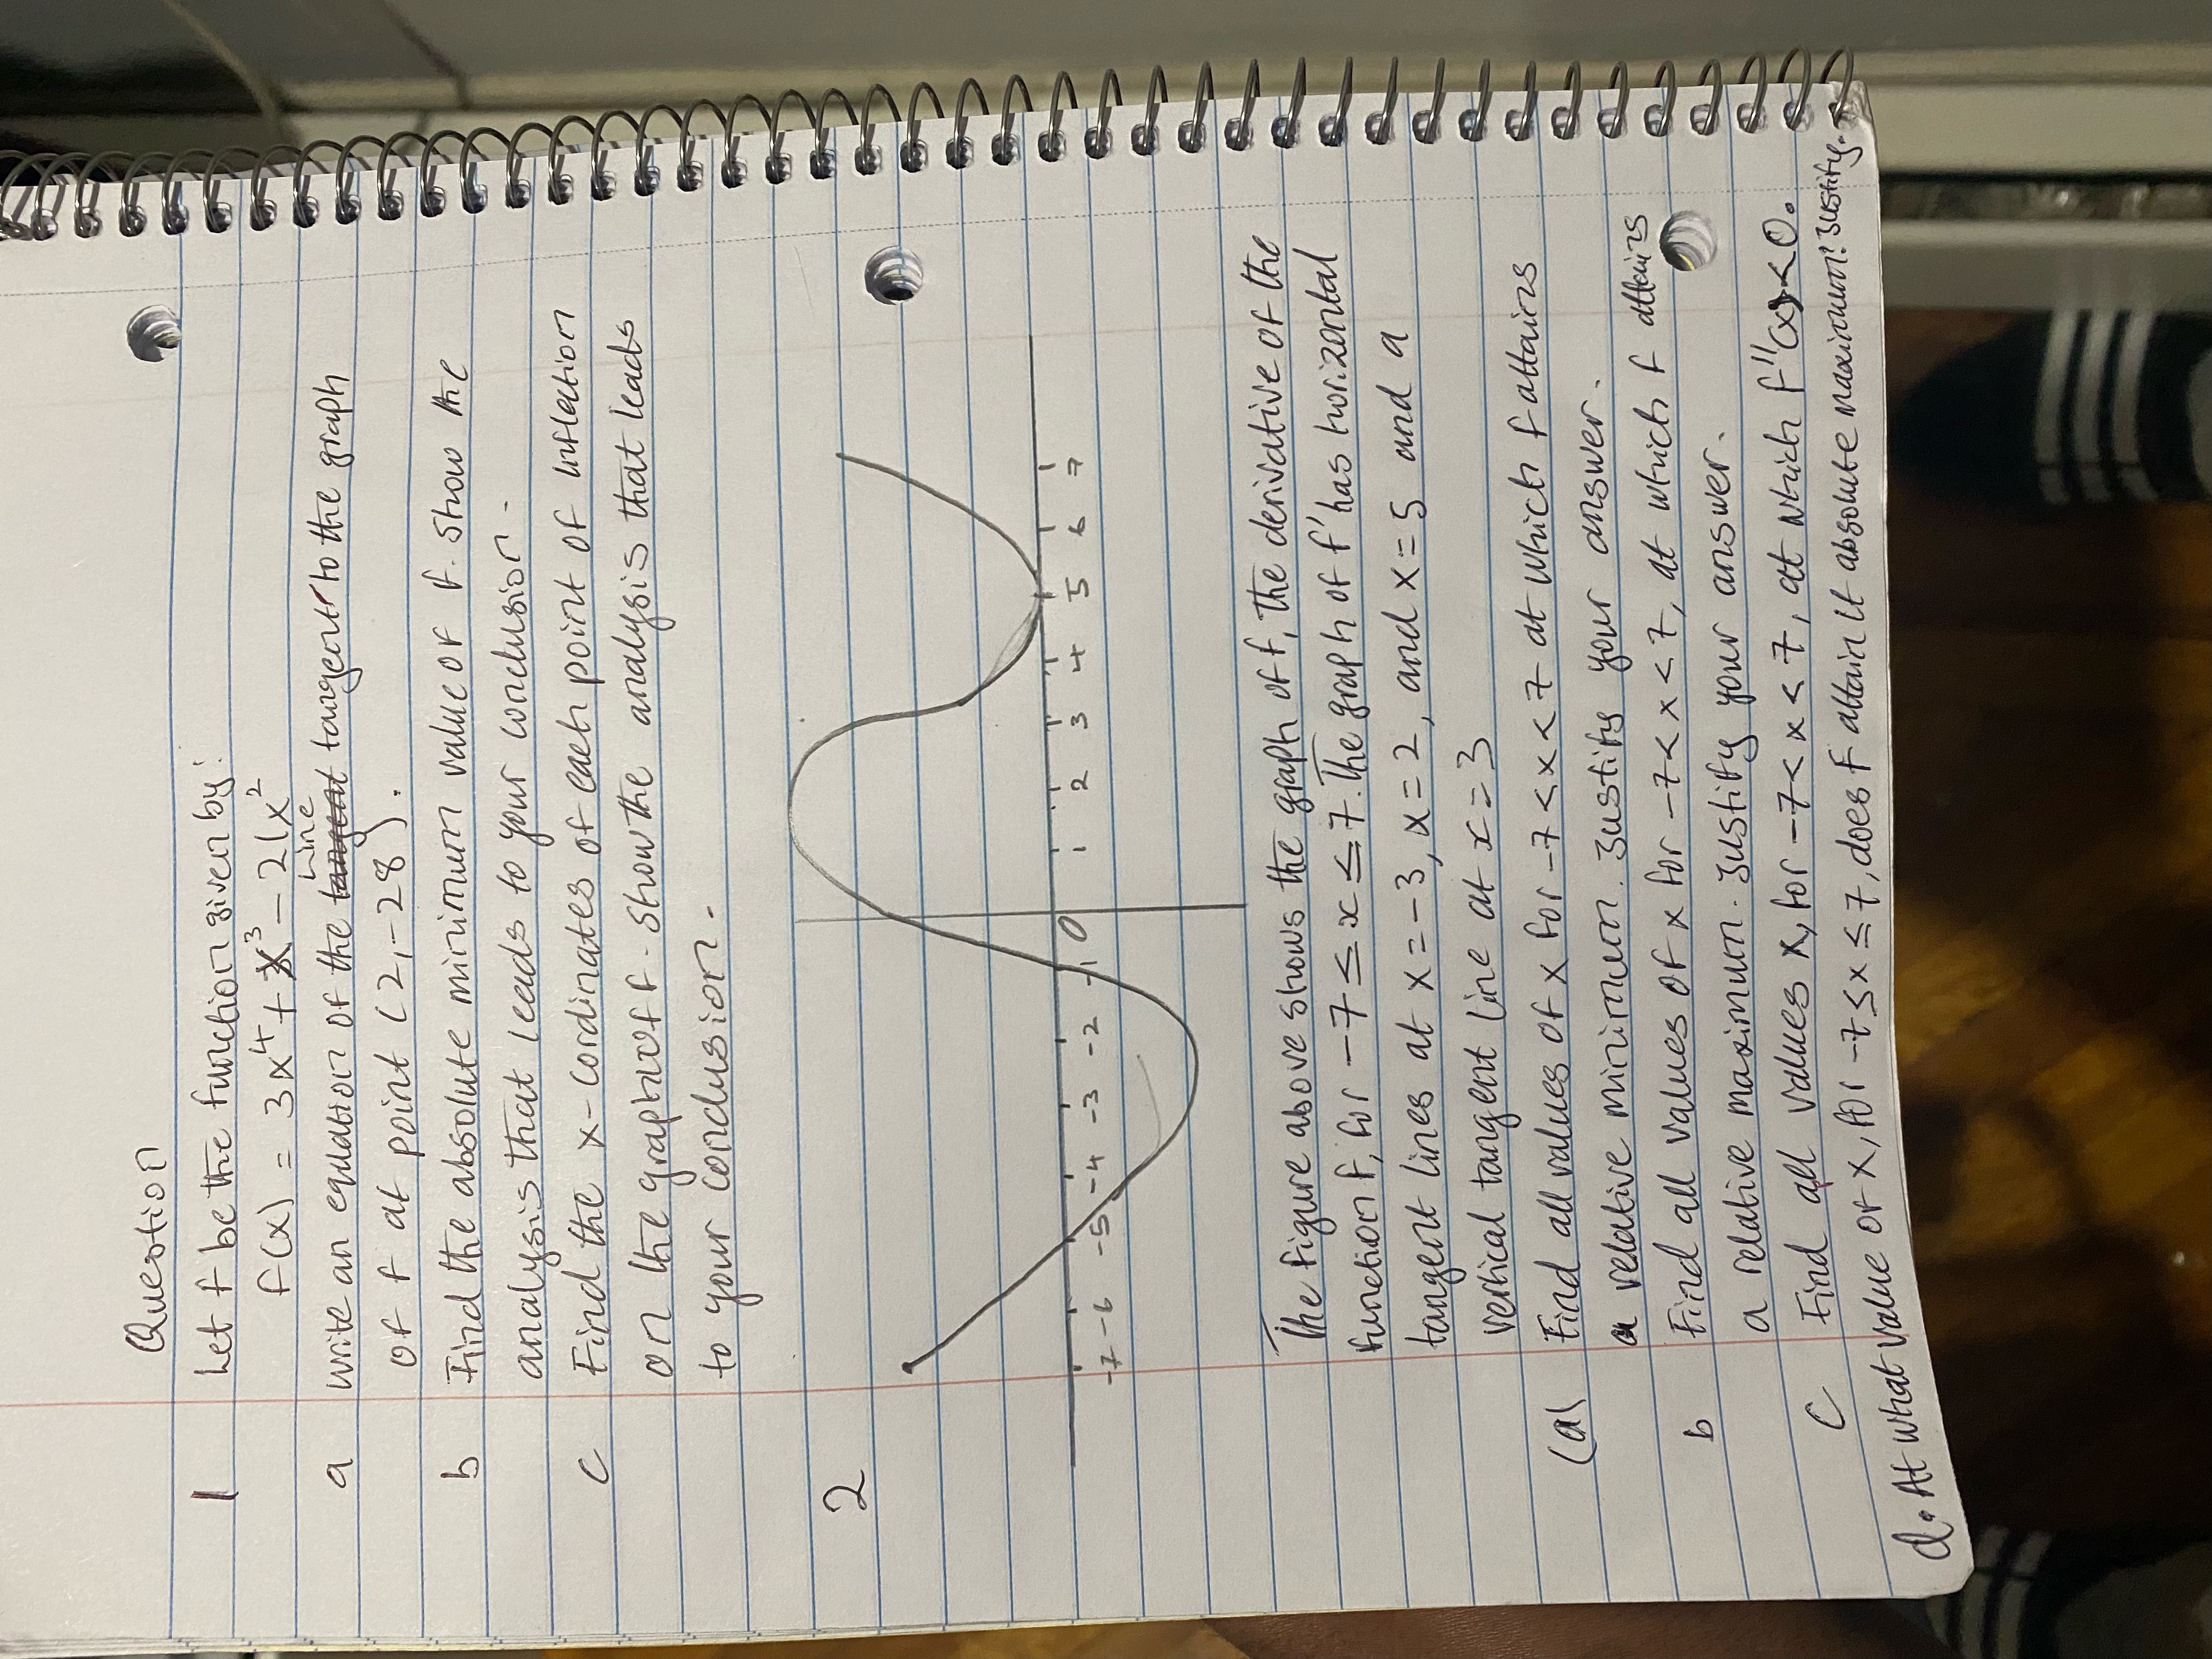 Question
1 Let f be the function given by:
f(x) = 3x⁴ + x³ - 21x²
Line
a write an equation of the tangent to the graph
of f at point (2, -28).
b Find the absolute minimum value of f. Show the
analysis that leads to your conclusion.
c Find the x-cordinates of each point of inflection
on the graph of f. Show the analysis that leads
to your conclusion.
2
-7 -6 -5 -4 -3 -2 -1 0 1 2 3 4 5 6 7
The figure above shows the graph of f, the derivative of the
function f, for -7 ≤ x ≤ 7. The graph of f' has horizontal
tangent lines at x = -3, x = 2, and x = 5 and a
vertical tangent line at x = 3
(a) Find all values of x for -7 < x < 7 at which f attains
a relative minimum. Justify your answer.
b Find all values of x for -7 < x < 7, at which f attains
a relative maximum. Justify your answer.
c Find all values x, for -7 < x < 7, at which f''(x) < 0.
d. At what value of x, for -7 ≤ x ≤ 7, does f attain it absolute maximum? Justify.